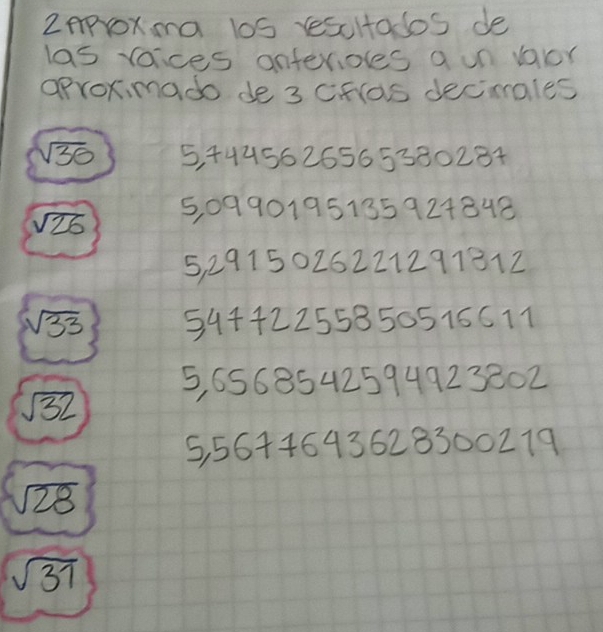 2 Aproxima los resultados de
las raices anteriores a un valor
aproximado de 3 cifras decimales
√30 5,7445626565380287
√26 5,0990195135927848
5,2915026221291812
√33 5,4772255850516611
√32 5,6568542594923802
5,5677643628300219
√28
√31